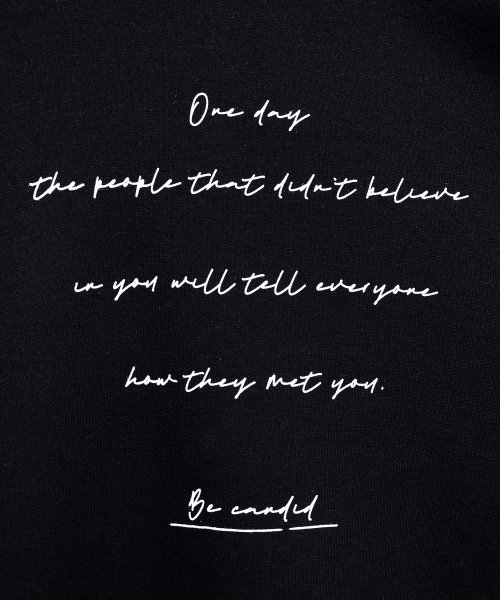 One day
the people that didn't believe
in you will tell everyone
how they met you.
Be candid